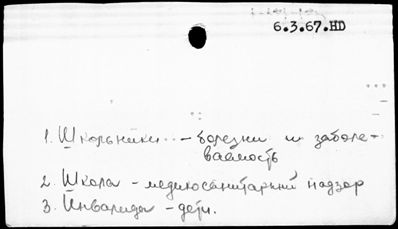 6.3.67.HD
1. Школьники - болезни и заболе-
ваемость
2. Школа - медикосанитарный надзор
3. Инвалиды - дети.